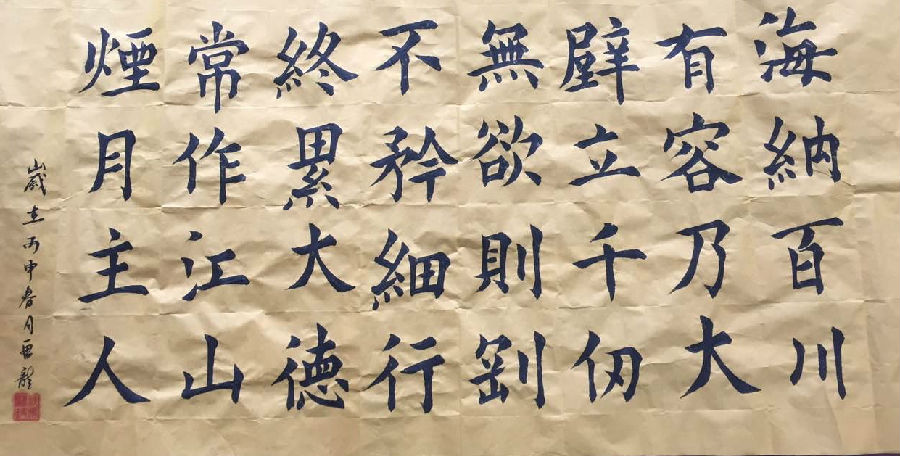 海納百川
有容乃大
壁立千仞
無欲則剛
不矜細行
終累大德
常作江山
煙月主人
歲在丙申春月